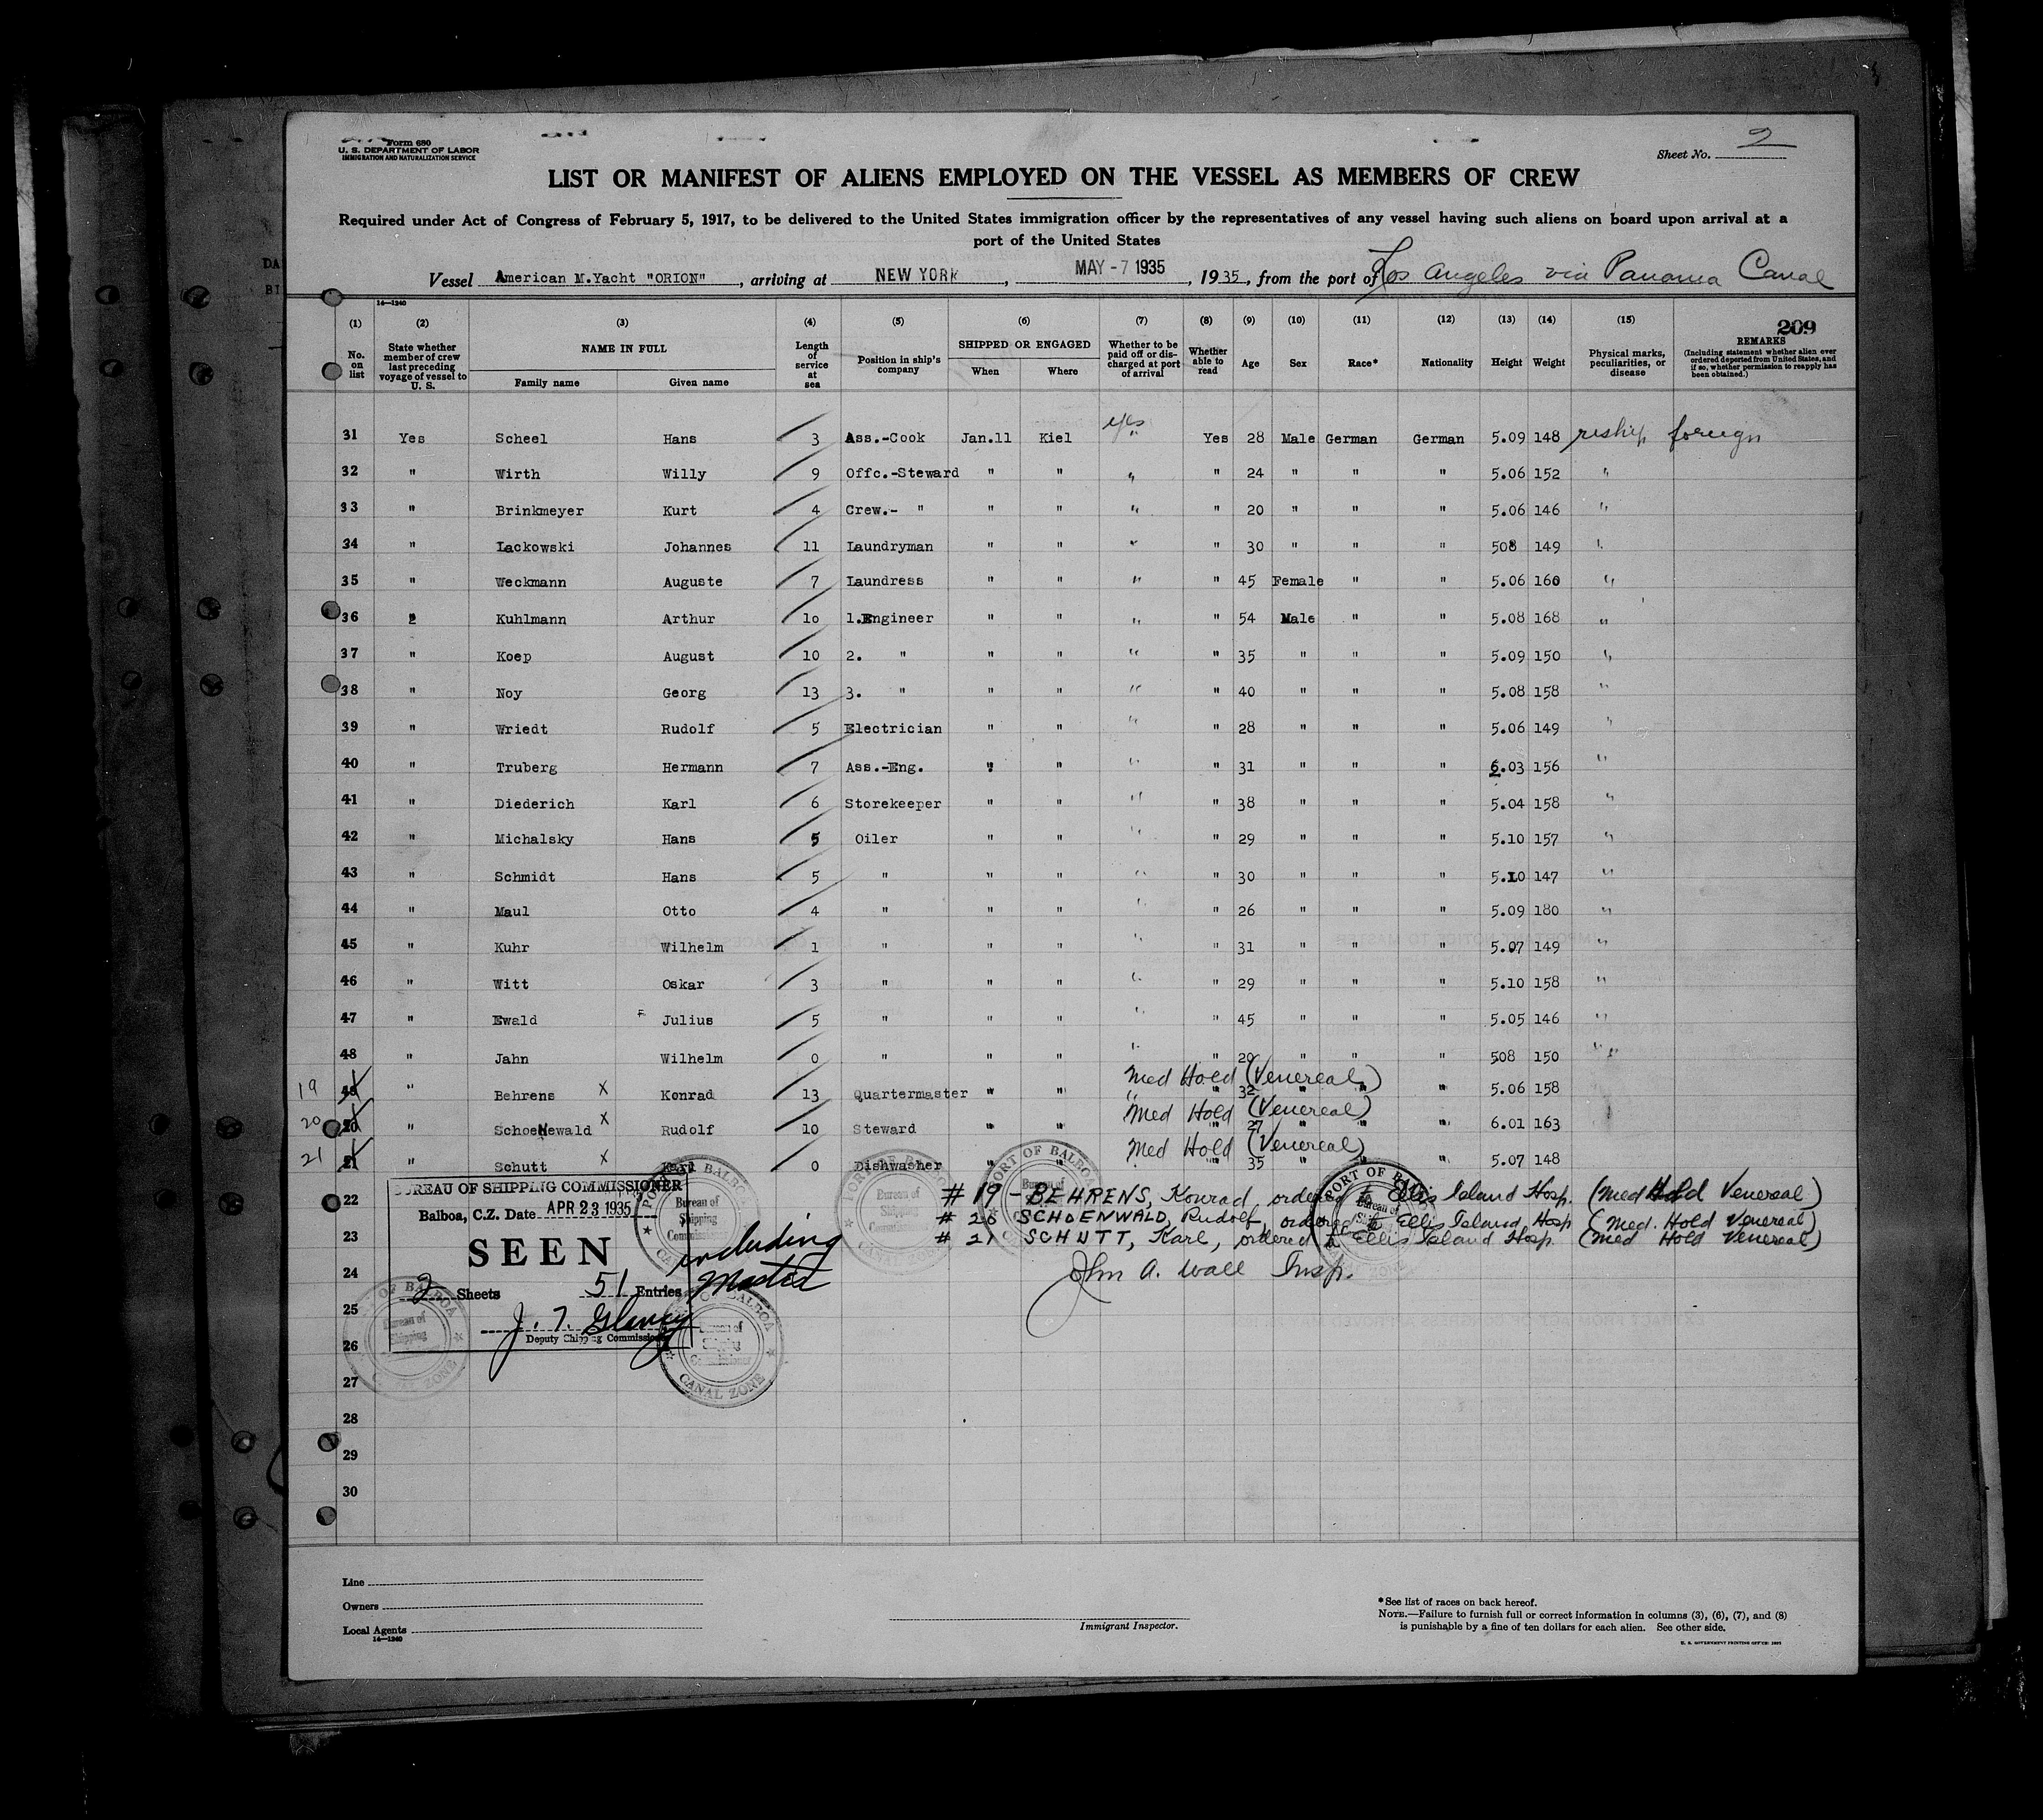 Form 680
U. S. DEPARTMENT OF LABOR
IMMIGRATION AND NATURALIZATION SERVICE
Sheet No. 2
LIST OR MANIFEST OF ALIENS EMPLOYED ON THE VESSEL AS MEMBERS OF CREW
Required under Act of Congress of February 5, 1917, to be delivered to the United States immigration officer by the representatives of any vessel having such aliens on board upon arrival at a
port of the United States
Vessel American M.Yacht "ORION", arriving at NEW YORK, MAY -7 1935, 1935, from the port of Los Angeles via Panama Canal
14—1240
(1) (2) (3) (4) (5) (6) (7) (8) (9) (10) (11) (12) (13) (14) (15) 209
No. on list
State whether member of crew last preceding voyage of vessel to U. S.
NAME IN FULL
Family name Given name
Length of service at sea
Position in ship's company
SHIPPED OR ENGAGED
When Where
Whether to be paid off or discharged at port of arrival
Whether able to read
Age
Sex
Race*
Nationality
Height
Weight
Physical marks, peculiarities, or disease
REMARKS
(Including statement whether alien ever ordered deported from United States, and if so, whether permission to reapply has been obtained.)
31 Yes Scheel Hans 3 Ass.-Cook Jan.11 Kiel yes " Yes 28 Male German German 5.09 148 reship foreign
32 " Wirth Willy 9 Offc.-Steward " " " " 24 " " " 5.06 152 "
33 " Brinkmeyer Kurt 4 Crew.- " " " " " 20 " " " 5.06 146 "
34 " Lackowski Johannes 11 Laundryman " " " " 30 " " " 508 149 "
35 " Weckmann Auguste 7 Laundress " " " " 45 Female " " 5.06 160 "
36 " Kuhlmann Arthur 1o 1.Engineer " " " " 54 Male " " 5.08 168 "
37 " Koep August 10 2. " " " " " 35 " " " 5.09 150 "
38 " Noy Georg 13 3. " " " " " 40 " " " 5.08 158 "
39 " Wriedt Rudolf 5 Electrician " " " " 28 " " " 5.06 149 "
40 " Truberg Hermann 7 Ass.-Eng. " " " " 31 " " " 6.03 156 "
41 " Diederich Karl 6 Storekeeper " " " " 38 " " " 5.04 158 "
42 " Michalsky Hans 5 Oiler " " " " 29 " " " 5.10 157 "
43 " Schmidt Hans 5 " " " " " 30 " " " 5.10 147 "
44 " Maul Otto 4 " " " " " 26 " " " 5.09 180 "
45 " Kuhr Wilhelm 1 " " " " " 31 " " " 5.07 149 "
46 " Witt Oskar 3 " " " " " 29 " " " 5.10 158 "
47 " Ewald Julius 5 " " " " " 45 " " " 5.05 146 "
48 " Jahn Wilhelm 0 " " " " " 20 " " " 508 150 "
Med Hold (Venereal)
19 49 " Behrens X Konrad 13 Quartermaster " " " " 32 " " " 5.06 158
Med Hold (Venereal)
20 20 " Schoenewald X Rudolf 10 Steward " " " 27 " " " 6.01 163
Med Hold (Venereal)
21 21 " Schutt X Karl 0 Dishwasher " " " 35 " " " 5.07 148
22 #19 - BEHRENS, Konrad, ordered to Ellis Island Hosp. (Med Hold Venereal)
#20 SCHOENWALD, Rudolf, ordered to Ellis Island Hosp (Med. Hold Venereal)
23 #21 SCHUTT, Karl, ordered to Ellis Island Hosp. (Med Hold Venereal)
24 John A. Wall Insp.
25
26
27
28
29
30
BUREAU OF SHIPPING COMMISSIONER
Balboa, C.Z. Date APR 23 1935
SEEN
2 Sheets 51 Entries
including Master
Deputy Shipping Commissioner
PORT OF BALBOA
Bureau of Shipping Commissioner
CANAL ZONE
Line
Owners
Local Agents
14—1240
Immigrant Inspector.
*See list of races on back hereof.
NOTE.—Failure to furnish full or correct information in columns (3), (6), (7), and (8)
is punishable by a fine of ten dollars for each alien. See other side.